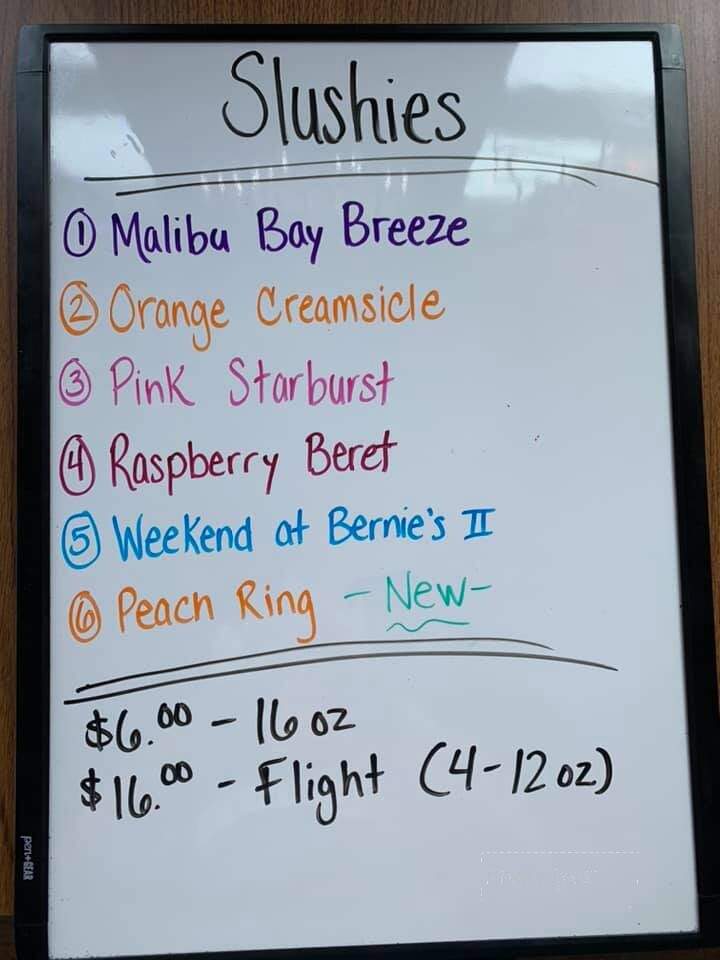 Slushies
① Malibu Bay Breeze
② Orange Creamsicle
③ Pink Starburst
④ Raspberry Beret
⑤ Weekend at Bernie's II
⑥ Peach Ring - New -
$6.00 - 16 oz
$16.00 - Flight (4-12 oz)
pen+GEAR